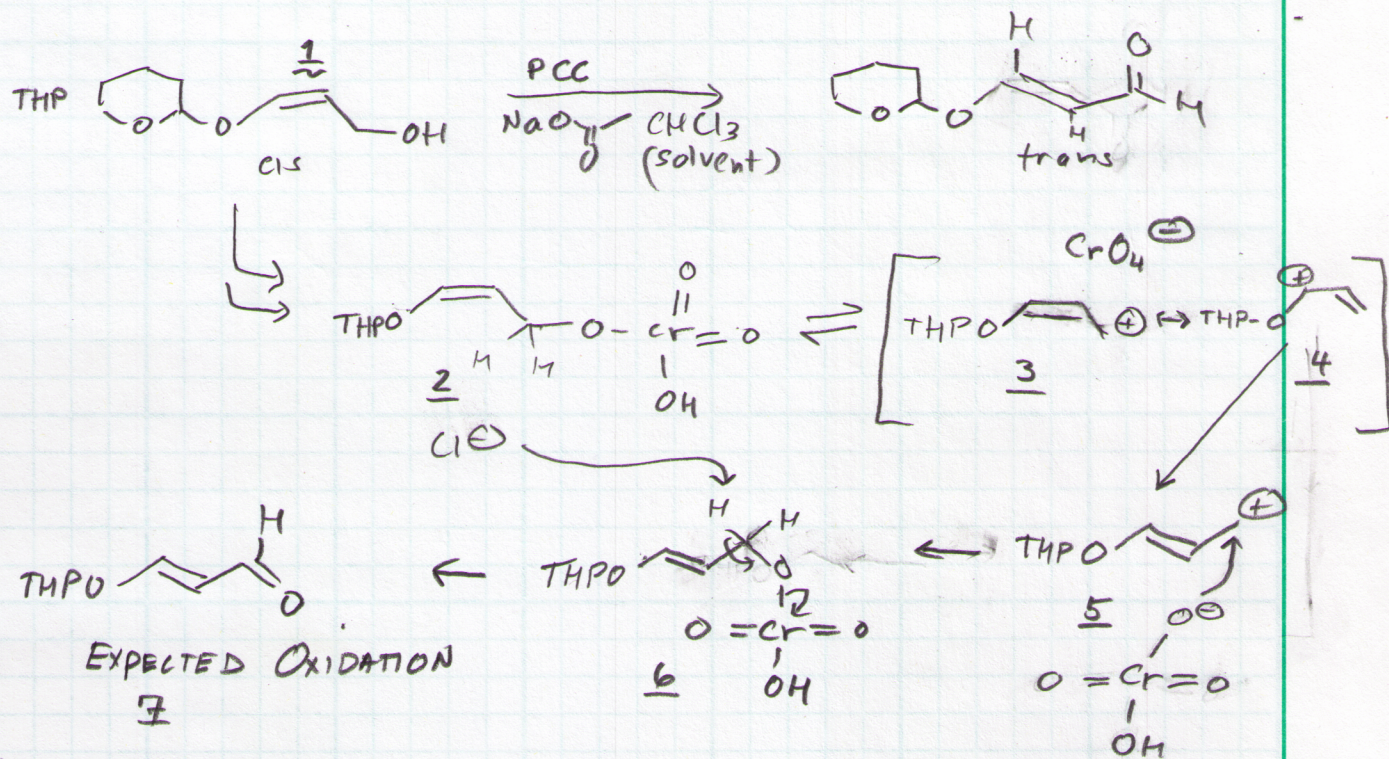 1
H
O
THP
O
O
OH
cis
PCC
NaO
O
CHCl3
(solvent)
O
O
H
H
trans
CrO4 ⊖
THPO
H
H
O
Cr
O
O
OH
2
⇌
THPO
⊕
↔
THP-O
⊕
3
4
Cl⊖
THPO
H
O
EXPECTED OXIDATION
7
THPO
H
H
O
O = Cr = O
OH
6
THPO
⊕
5
O⊖
O = Cr = O
OH